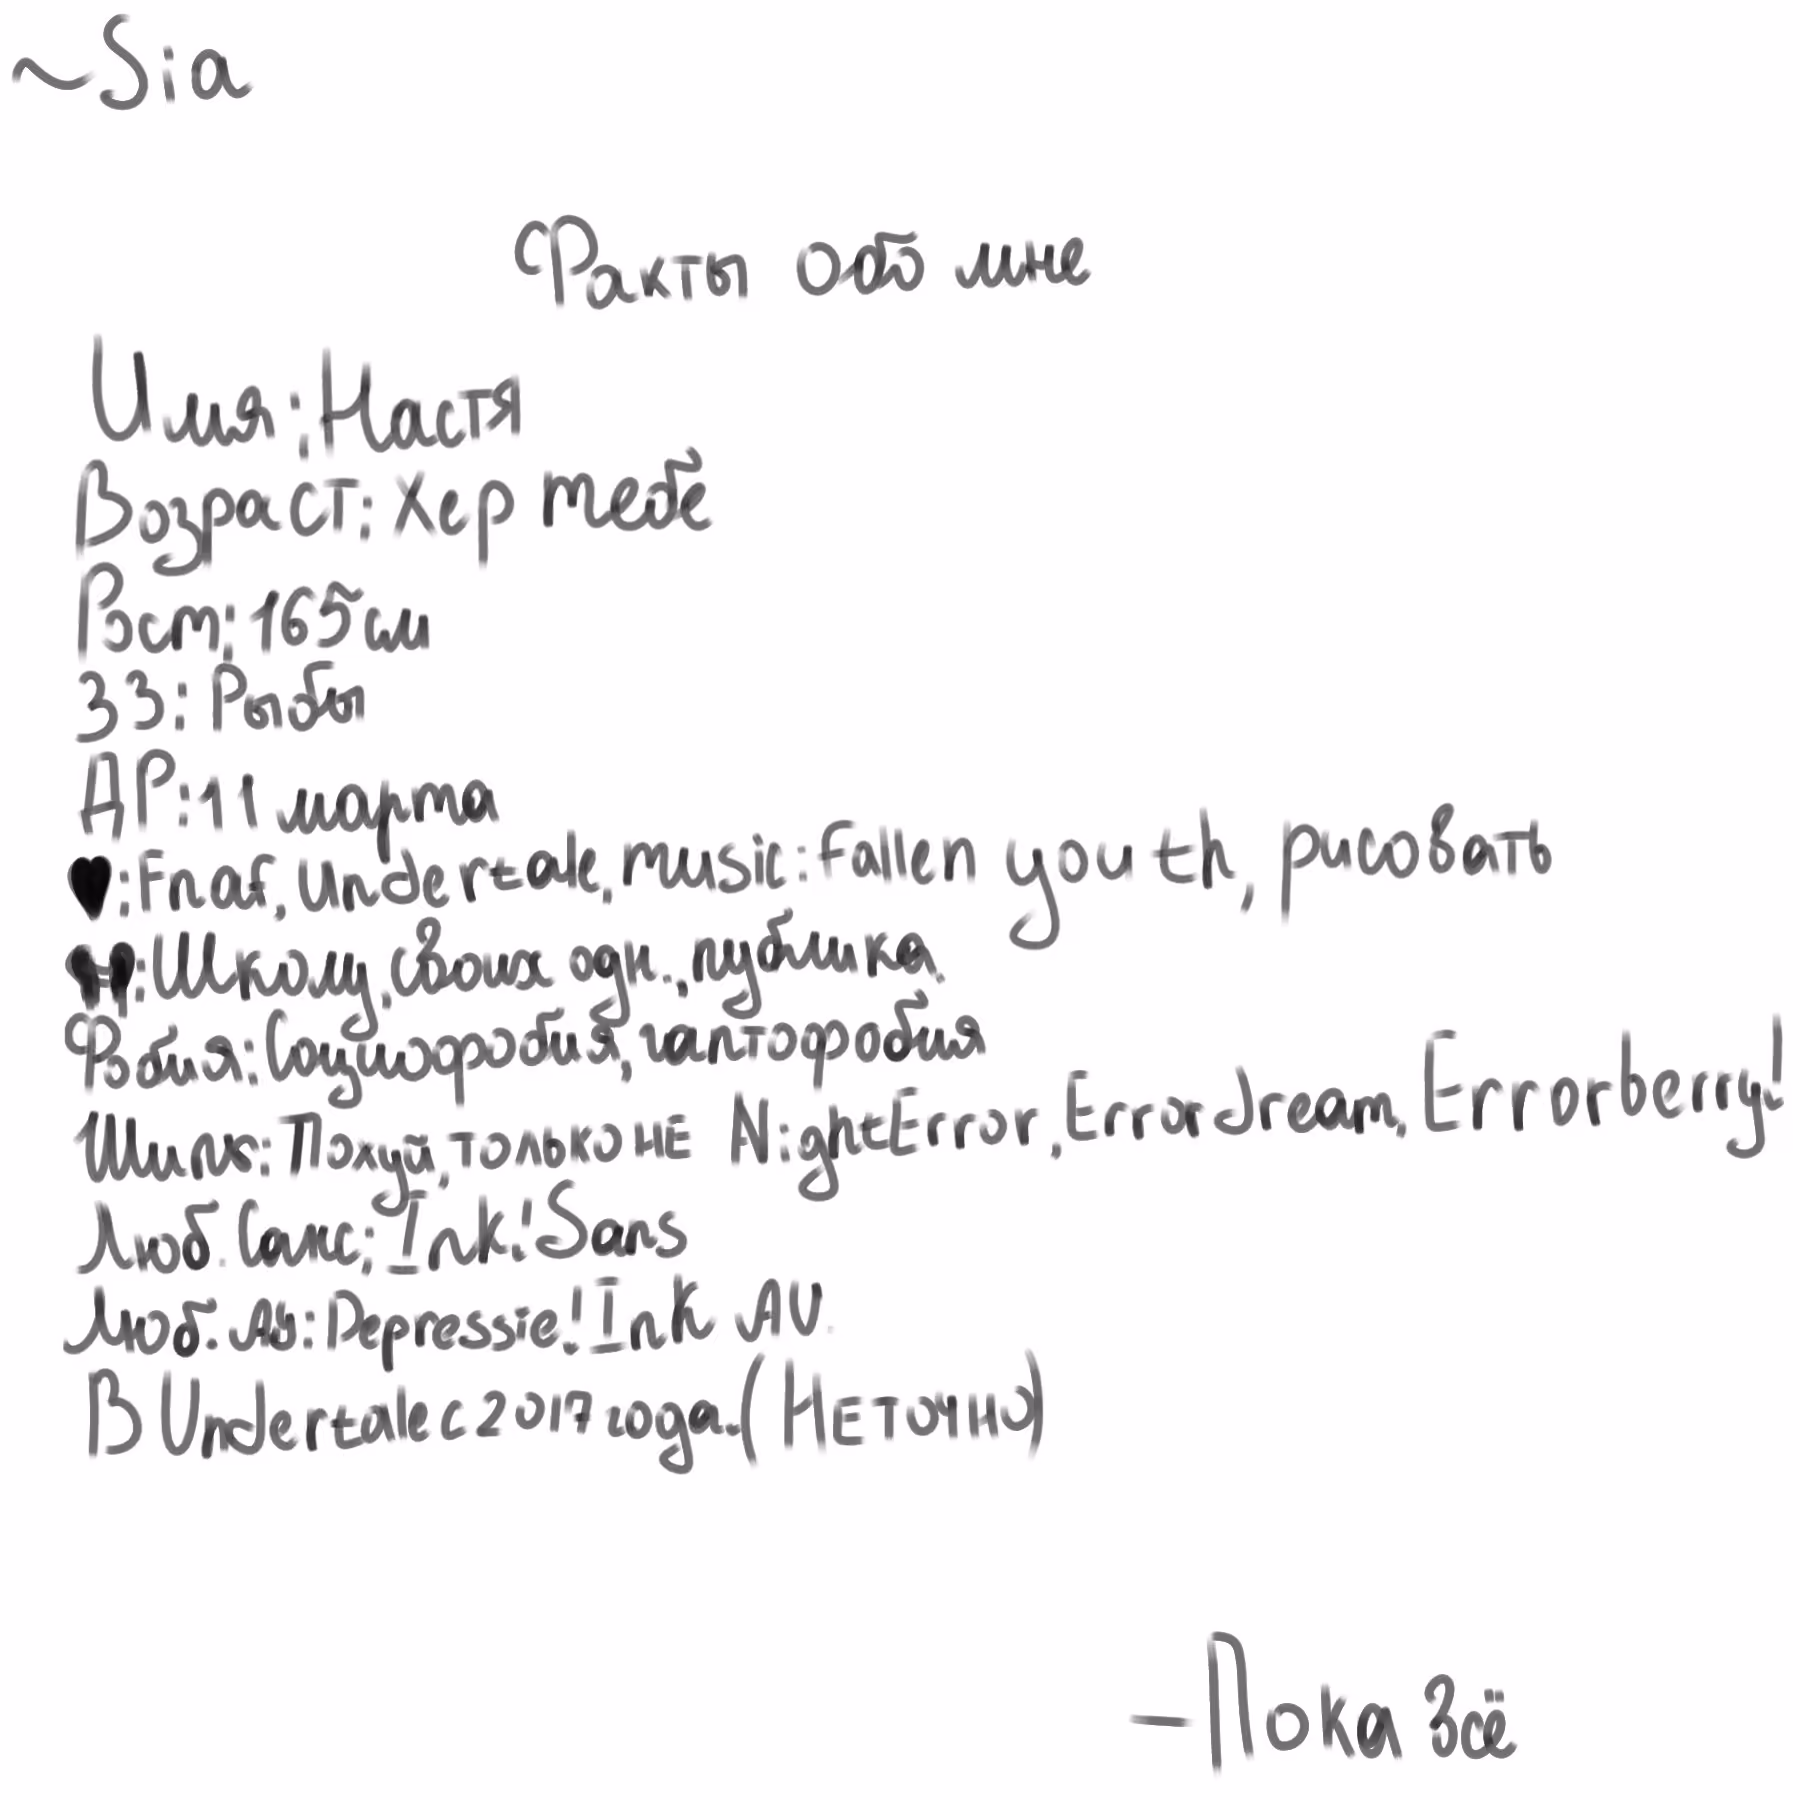 ~Sia
Факты обо мне
Имя: Настя
Возраст: Хер тебе
Рост: 165 см
ЗЗ: Рыбы
ДР: 11 марта
🖤: Fnaf, Undertale, music: fallen youth, рисовать
: Школу, своих одн., публика.
Фобия: Социофобия, гаптофобия
Шипы: Похуй, только не NightError, Errordream, Errorberry!
Люб. Санс: Ink!Sans
Люб. АУ: Depressie!Ink AU.
В Undertale с 2017 года. (Неточно)
-Пока всё